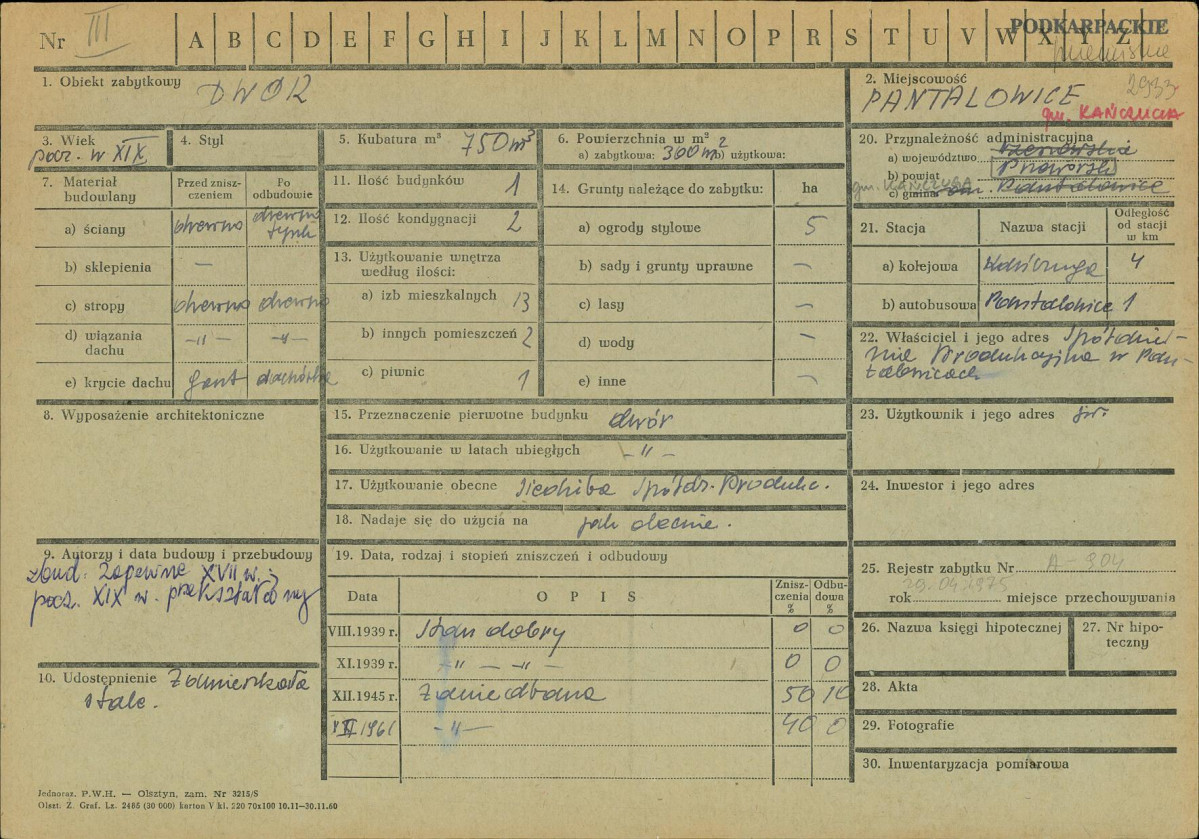 Nr III A B C D E F G H I J K L M N O P R S T U V W X Y Z
PODKARPACKIE
1. Obiekt zabytkowy DWÓR
2. Miejscowość 2933
PANTALOWICE
gm. KAŃCZUGA
3. Wiek
pocz. w XIX
4. Styl
5. Kubatura m³ 750 m³
6. Powierzchnia w m²
a) zabytkowa: 360 m² b) użytkowa:
20. Przynależność administracyjna
a) województwo rzeszowskie
b) powiat Przeworski
gm. KAŃCZUGA
c) gmina Pantalowice
7. Materiał budowlany
Przed znisz-
czeniem
Po
odbudowie
a) ściany drewno drewno
tynk
b) sklepienia —
c) stropy drewno drewno
d) wiązania
dachu —„— —„—
e) krycie dachu gont dachówka
11. Ilość budynków 1
12. Ilość kondygnacji 2
13. Użytkowanie wnętrza
według ilości:
a) izb mieszkalnych 13
b) innych pomieszczeń 2
c) piwnic 1
14. Grunty należące do zabytku: ha
a) ogrody stylowe 5
b) sady i grunty uprawne —
c) lasy —
d) wody —
e) inne —
21. Stacja Nazwa stacji
Odległość
od stacji
w km
a) kolejowa Kańczuga 4
b) autobusowa Pantalowice 1
22. Właściciel i jego adres Spółdziel-
nia Produkcyjna w Pan-
talowicach
8. Wyposażenie architektoniczne
15. Przeznaczenie pierwotne budynku dwór
16. Użytkowanie w latach ubiegłych —„—
17. Użytkowanie obecne Siedziba Spółdz. Produkc.
18. Nadaje się do użycia na jak obecnie.
23. Użytkownik i jego adres jw.
24. Inwestor i jego adres
9. Autorzy i data budowy i przebudowy
zbud. zapewne XVII w.;
pocz. XIX w. przekształcony
10. Udostępnienie Zamieszkała
stale.
19. Data, rodzaj i stopień zniszczeń i odbudowy
Data OPIS
Znisz-
czenia
%
Odbu-
dowa
%
VIII.1939 r. Stan dobry 0 0
XI.1939 r. —„— —„— 0 0
XII.1945 r. Zaniedbana 50 10
1961 —„— 40 0
25. Rejestr zabytku Nr A-904
29.04.1975
rok miejsce przechowywania
26. Nazwa księgi hipotecznej
27. Nr hipo-
teczny
28. Akta
29. Fotografie
30. Inwentaryzacja pomiarowa
Jednoraz. P.W.H. — Olsztyn, zam. Nr 3215/S
Olszt. Z. Graf. Lz. 2486 (30 000) karton V kl. 220 70x100 10.11—30.11.60